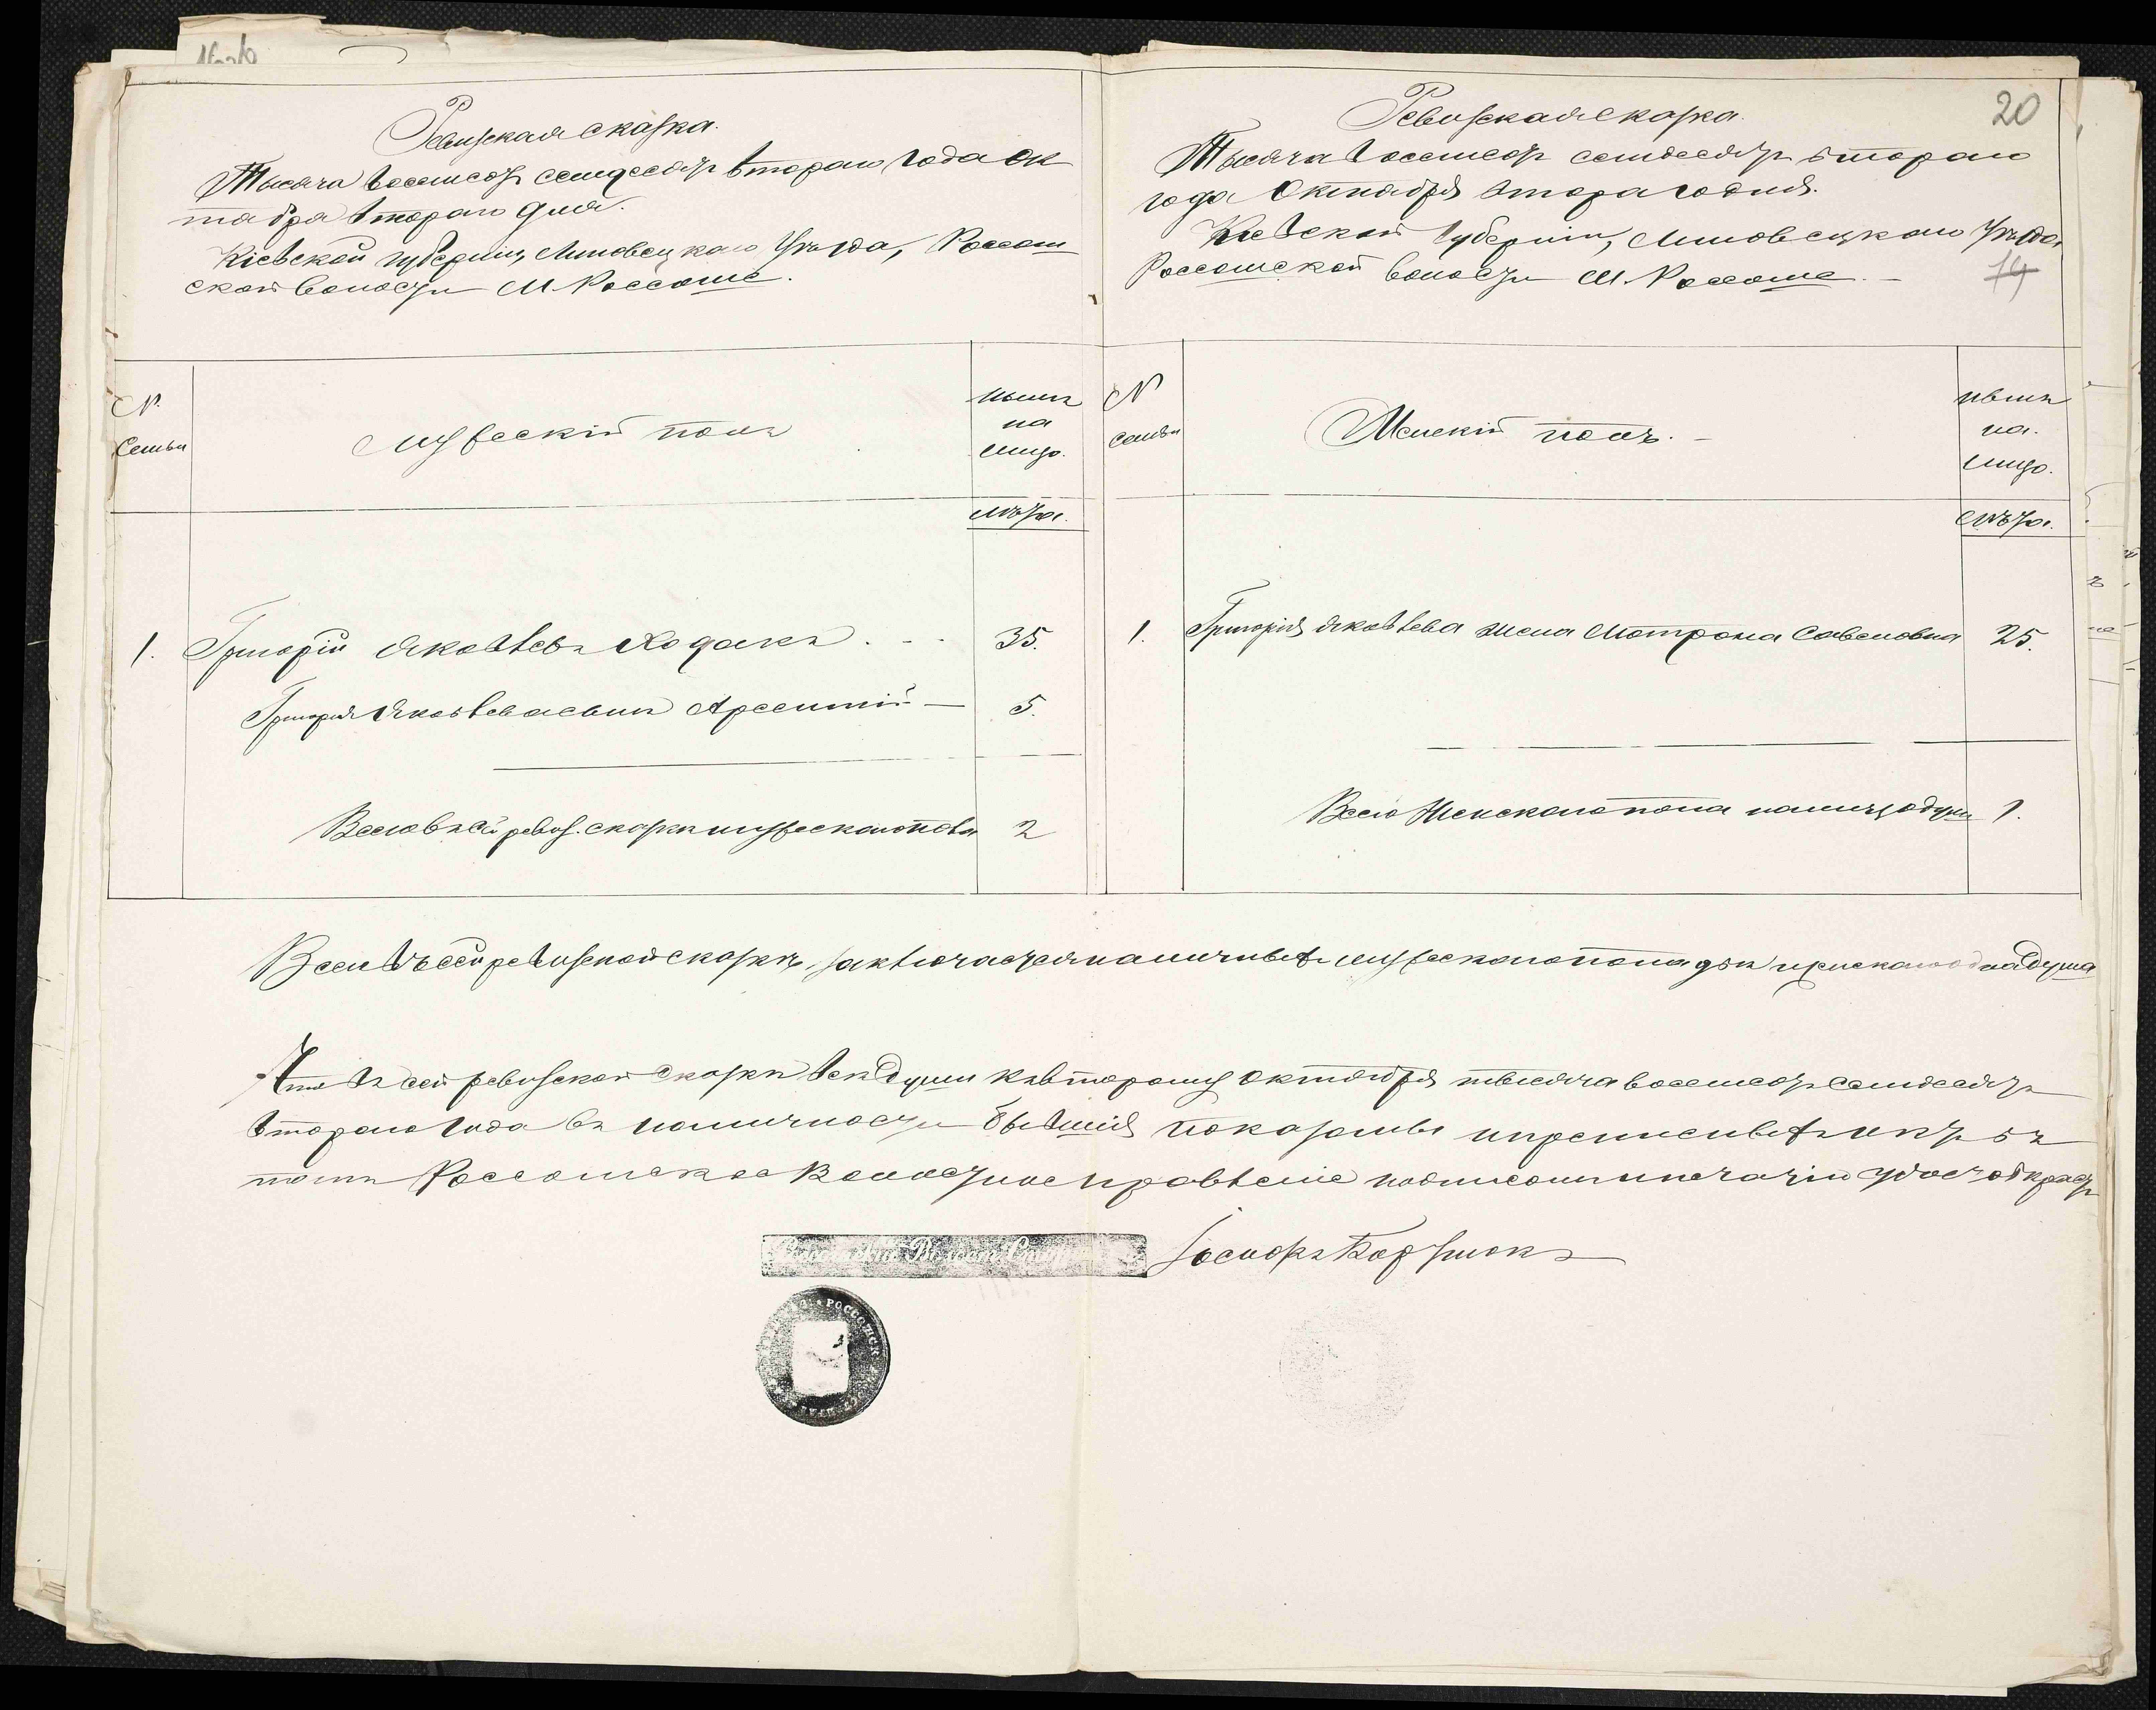 Ревизская сказка.
Тысяча восемсот семдесят втораго года ок
тября втораго дня.
Кіевской губерніи, Липовецкаго Уѣзда, Россош
ской волости М. Россоше.
№
Семьи
Мужескій полъ
нынѣ
на
лицо.
лѣта.
1. Григорій Яковлевъ Ходакъ . - - 35.
Григорія Яковлева сынъ Арсентій — 5.
Всего въ сей ревиз. сказки мужескаго пола 2
20
Ревизская сказка.
Тысяча восемсот семдесят втораго
года Октября втораго дня.
Кіевской губерніи, Липовецкаго Уѣзда,
Россошской волости М. Россоше. —
19
№
семьи
Женскій полъ. —
нынѣ
на.
лицо.
лѣта.
1. Григорія Яковлева жена Мотрона Савеловна 25.
Всего Женскаго пола налицо души 1.
Всего въ сей ревизской сказкѣ заключается наличныхъ мужескаго пола двѣ женскаго одна душа
Что въ сей ревизской сказки всѣ души къ второму октября тысяча восемсот семдесятъ
втораго года въ наличности бывшія показаны и прописныхъ нѣтъ въ
томъ Россошское Волостное правленіе подписом и печатію удостовѣряетъ
Іосифъ Кор
РОССОШСК